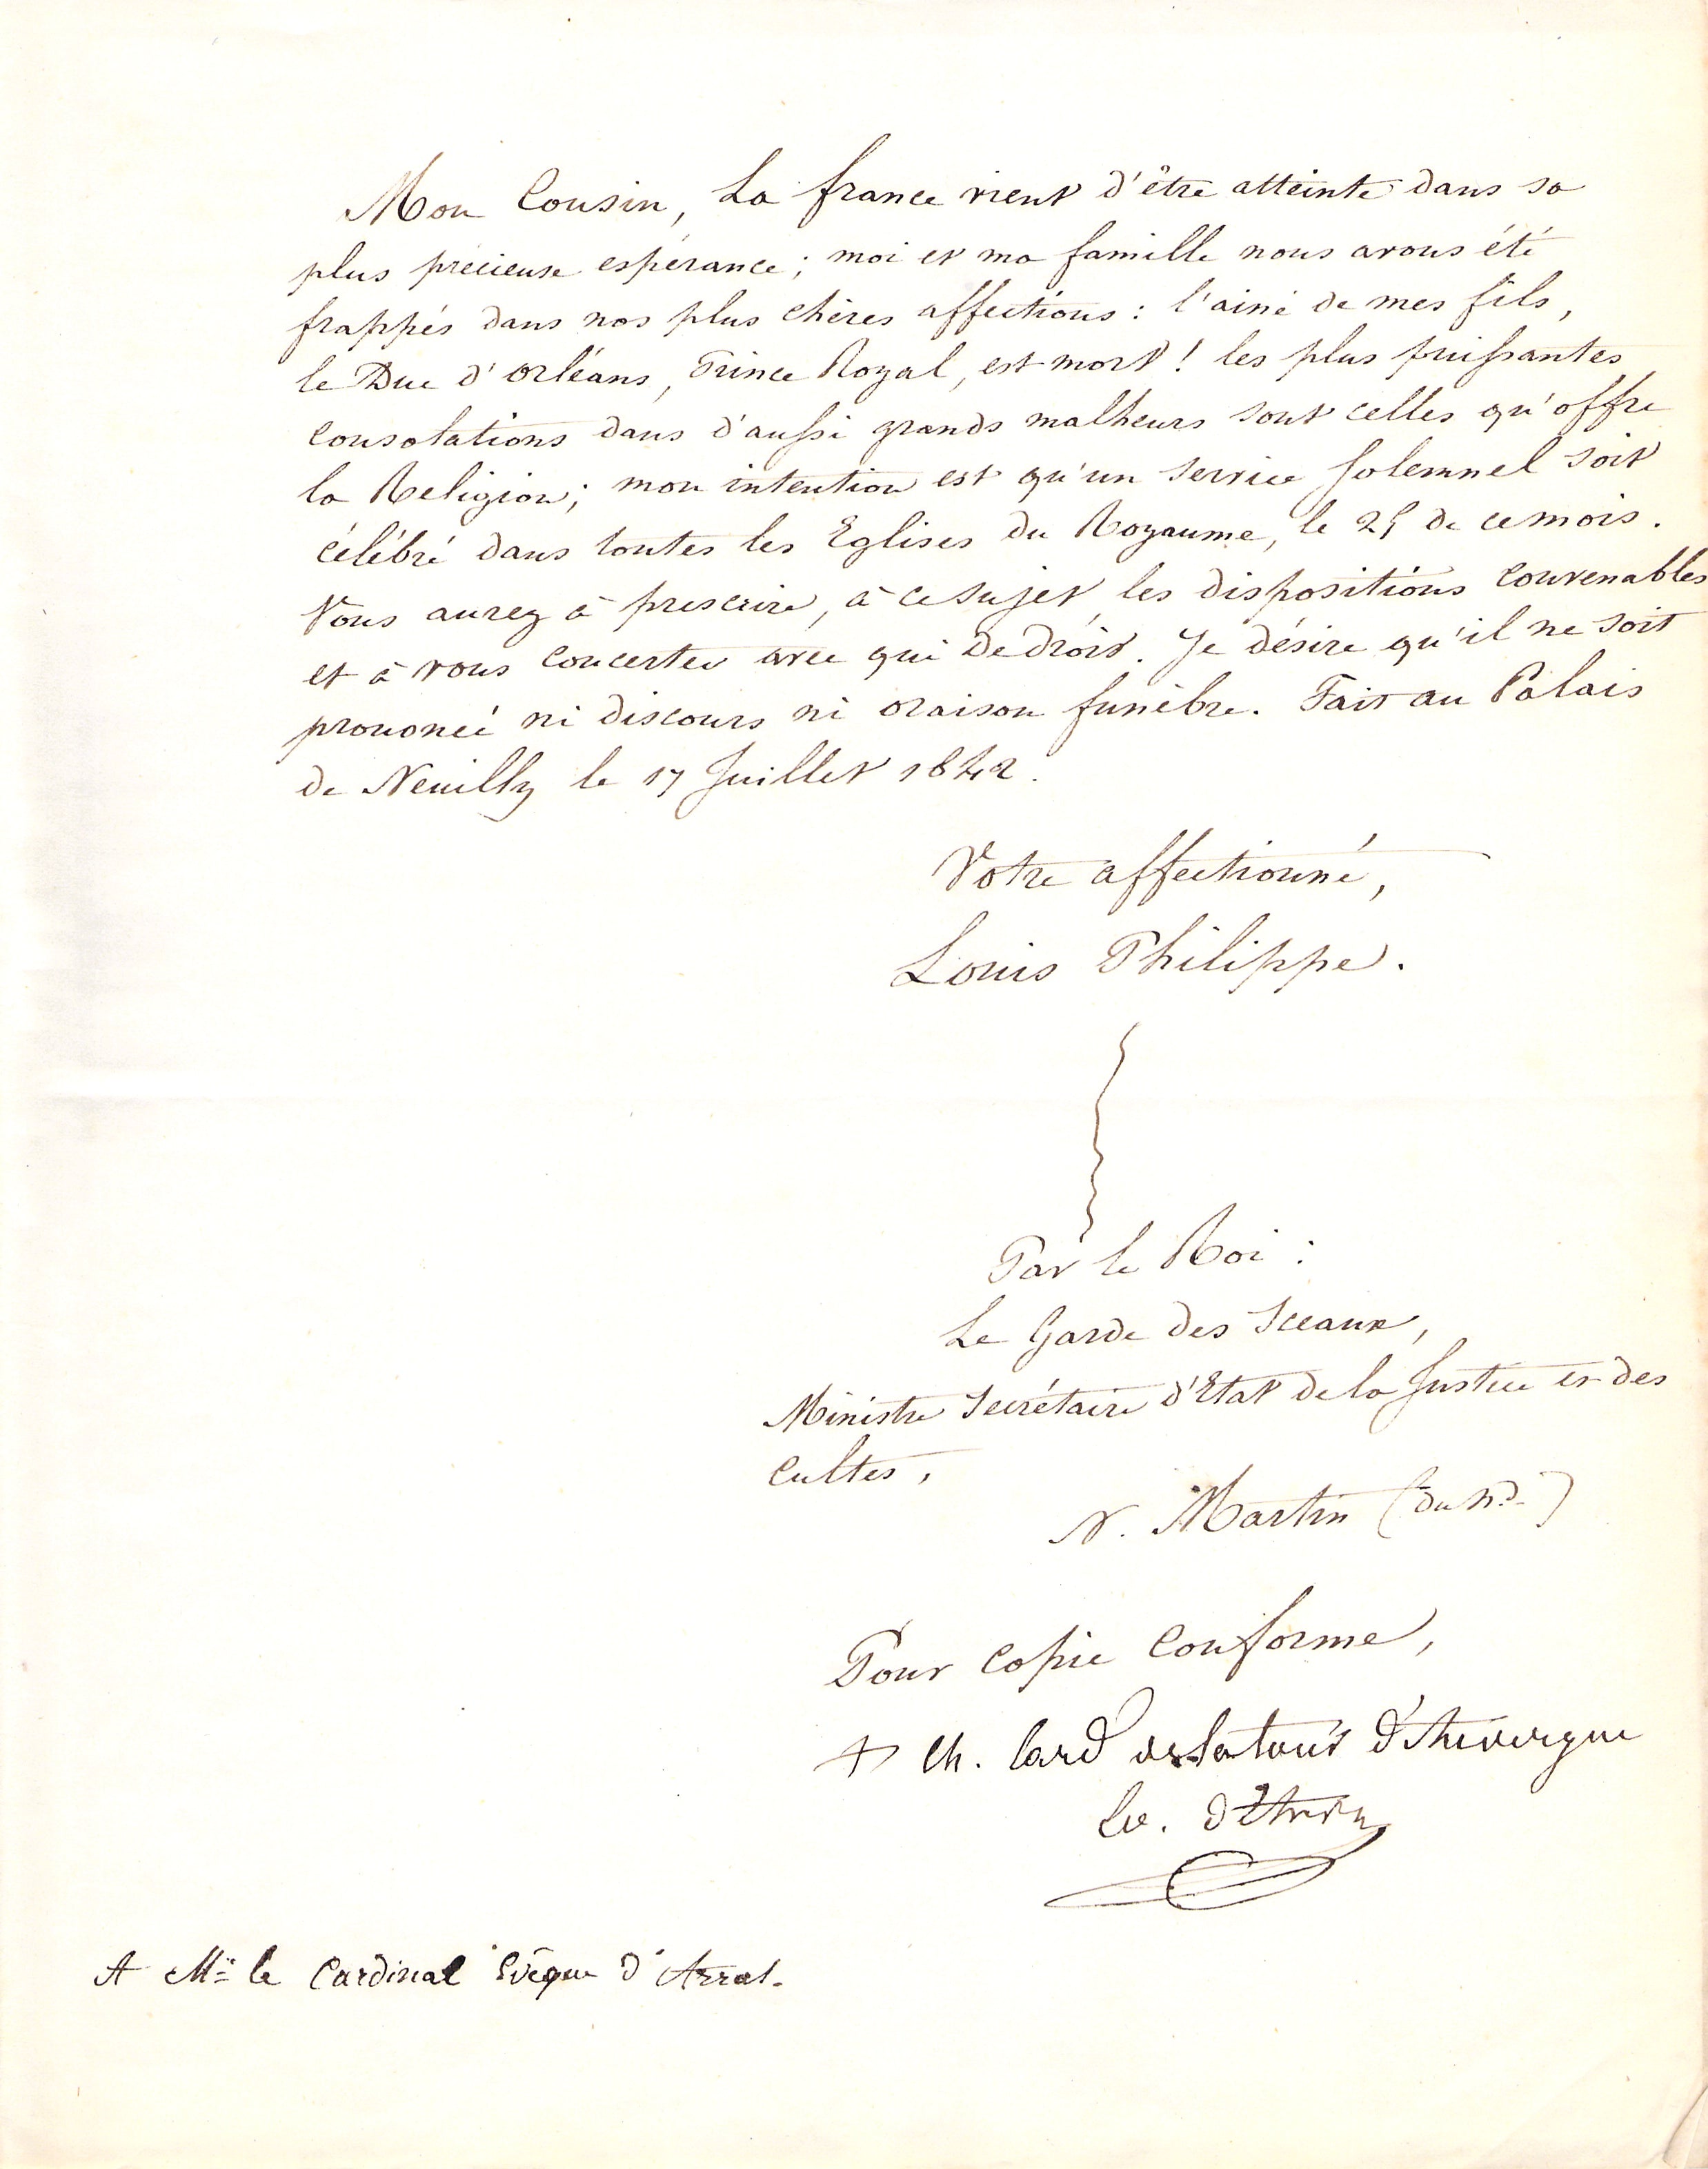 Mon Cousin, La france vient d'être atteinte dans sa
plus précieuse espérance ; moi et ma famille nous avons été
frappés dans nos plus chères affections : l'ainé de mes fils,
le Duc d'Orléans, Prince Royal, est mort ! les plus puissantes
consolations dans d'aussi grands malheurs sont celles qu'offre
la Religion ; mon intention est qu'un service solemnel soit
célébré dans toutes les Eglises du Royaume, le 25 de ce mois.
Vous aurez à prescrire, à ce sujet, les dispositions convenables
et à vous concerter avec qui de droit. Je désire qu'il ne soit
prononcé ni discours ni oraison funèbre. Fait au Palais
de Neuilly le 17 Juillet 1842.
Votre affectionné,
Louis Philippe.
Par le Roi :
Le Garde des Sceaux,
Ministre Secrétaire d'Etat de la Justice et des
Cultes,
N. Martin (du Nd.)
Pour copie conforme,
+ Ch. Card de la tour d'Auvergne
Ev. d'Arras
A Mr. le Cardinal Evêque d'Arras.